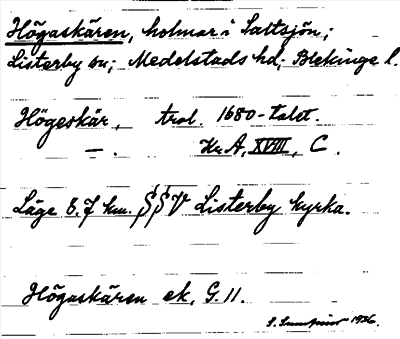 Högaskären, holmar i Saltsjön;
Listerby sn; Medelstads hd; Blekinge l.
Högeskär, trol. 1680-talet.
—. Kr. A, XVIII, C.
Läge 8.7 km. SSV Listerby kyrka.
Högaskären ek, G. 11.
1936.